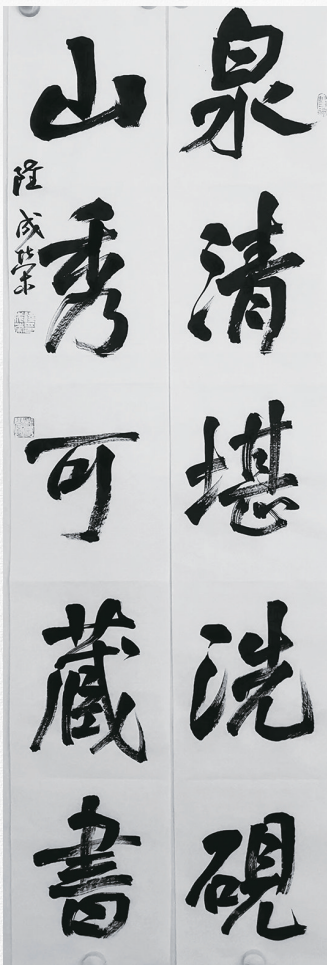 泉清堪洗硯
山秀可藏書
陸成榮